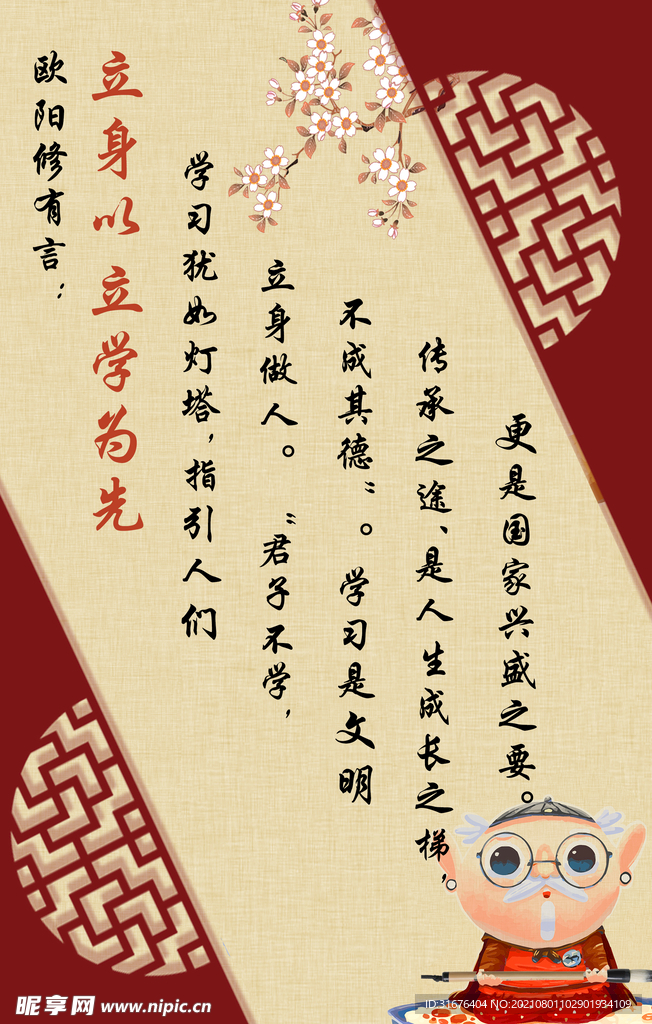 欧阳修有言：
立身以立学为先
学习犹如灯塔，指引人们
立身做人。“君子不学，
不成其德”。学习是文明
传承之途、是人生成长之梯，
更是国家兴盛之要。
昵享网 www.nipic.cn
ID:31676404 NO:20210801102901934109